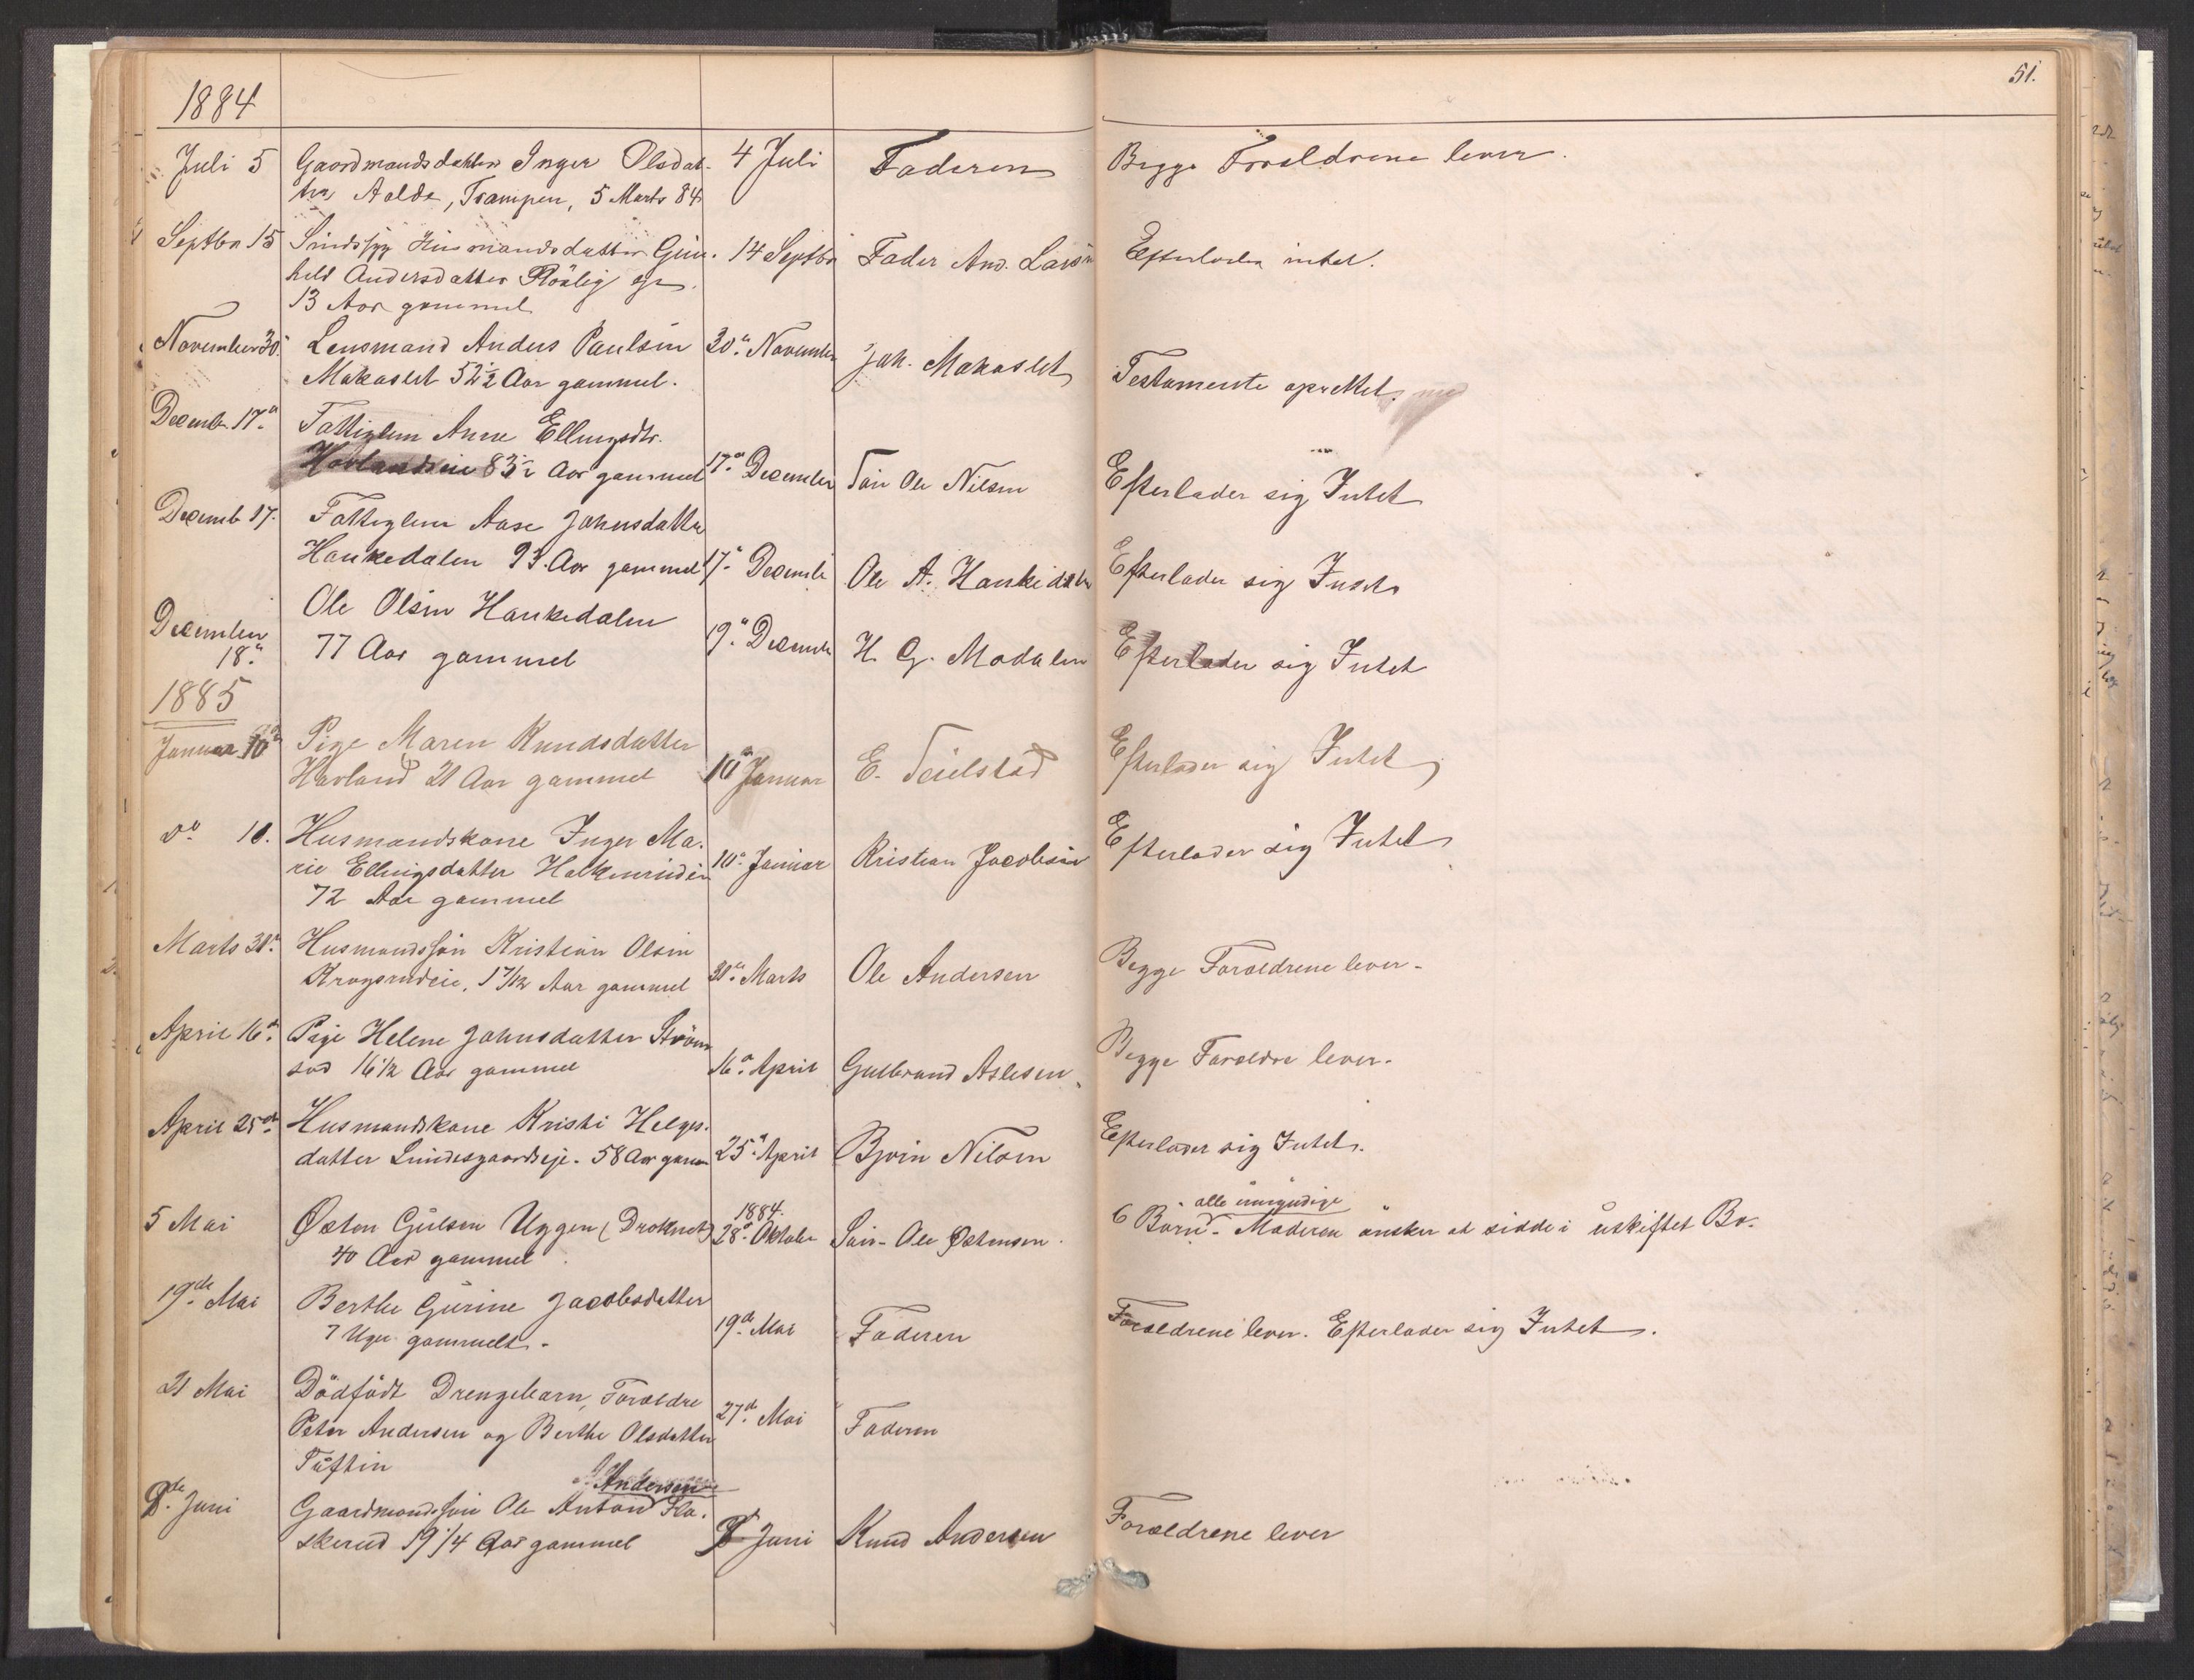 51.
1884
Juli 5 Gaardmandsdatter Inger Olsdat- 4 Juli Faderen Begge Forældrene lever.
ter Aalde, Trampen, 5 Marts 84
Septbr 15 Sindssyg Husmandsdatter Gun- 14 Septbr Fader And. Larsen Efterlader intet.
hild Andersdatter
13 Aar gammel
November 30. Lensmand Anders Paulsen 30te November Joh. Makaslet Testamente oprettet.
Makaslet 52½ Aar gammel.
Decemb. 17de Fattiglem Anne Ellingsdtr.
Havlandseie 83½ Aar gammel 17de December Søn Ole Nilsen Efterlader sig Intet
Decemb 17. Fattiglem Aase Johnsdatter
Haukedalen 93 Aar gammel 17de Decemb Ole A. Haukedalen Efterlader sig Intet
Ole Olsen Haukedalen
December 18de 77 Aar gammel 19de Decemb H. G. Modalen Efterlader sig Intet
1885
Januar 10de Pige Maren Knudsdatter
Havland 21 Aar gammel 10de Januar E. Teielstad Efterlader sig Intet
do 10. Husmandskone Inger Ma-
rie Ellingsdatter 10de Januar Kristian Jacobsen Efterlader sig Intet
72 Aar gammel
Marts 30te Husmandssøn Kristian Olsen
Krogsrudeie, 1 7/12 Aar gammel 30te Marts Ole Andersen Begge Forældrene lever.
April 16de Pige Helene Johnsdatter Strøm
sod 16½ Aar gammel 16de April Gulbrand Aslesen Begge Forældre lever.
April 25de Husmandskone Kristi Helges-
datter Lundesgaardseje. 58 Aar gamm 25de April Bjørn Nilsen Efterlader sig Intet.
1884. alle umyndige
5 Mai Østen Gulsen Uggen (Druknet) 28de Oktober Søn- Ole Østensen 6 Børn - Moderen ønsker at sidde i uskiftet Bo.
40 Aar gammel.
19de Mai Berthe Gurine Jacobsdatter
7 Uger gammelt. 19de Mai Faderen Forældrene lever. Efterlader sig Intet.
21 Mai Dødfødt Drengebarn, Forældre
Peter Andersen og Berthe Olsdatter 27de Mai Faderen
Tuftin
Andersen
8de Juni Gaardmandssøn Ole Anton Fla-
skerud 19 1/4 Aar gammel 8de Juni Knud Andersen Forældrene lever